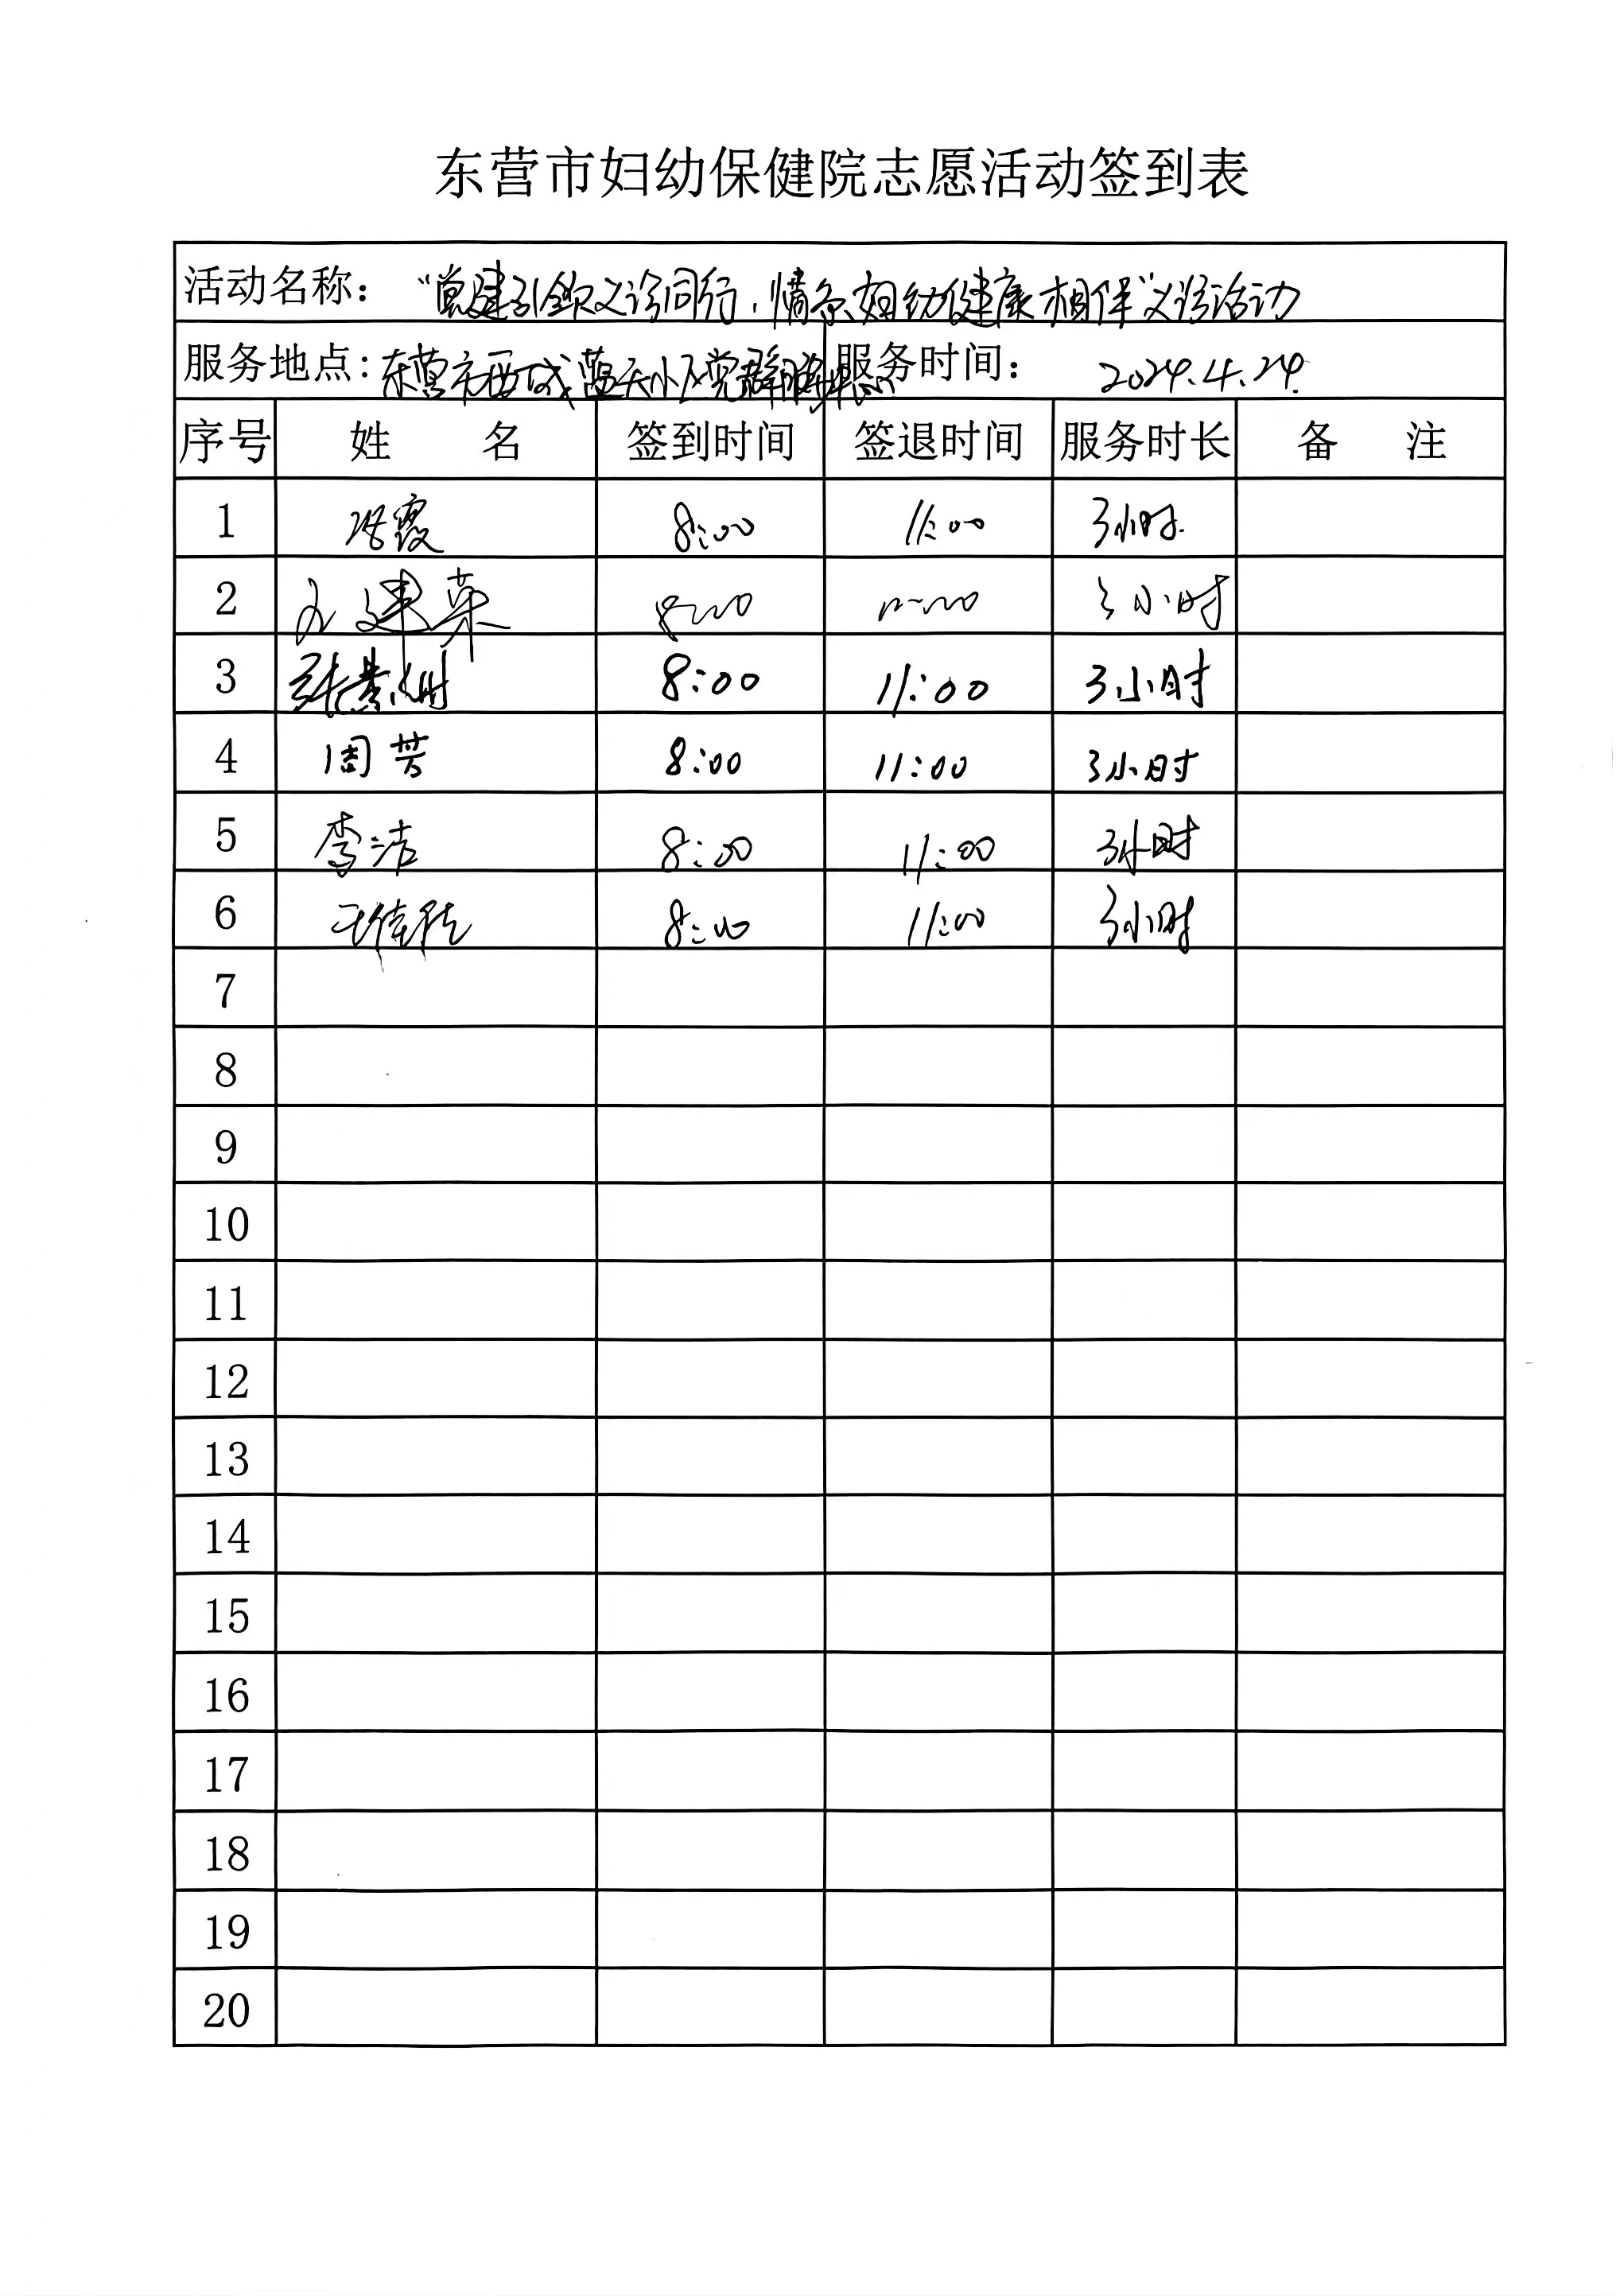 东营市妇幼保健院志愿活动签到表
活动名称： “党建引领义诊同行，情系妇幼健康相伴”义诊活动
服务地点： 东营市西城蓝天小区党群服务中心 服务时间： 2024.4.24.
序号 姓 名 签到时间 签退时间 服务时长 备 注
1 张霞 8:00 11:00 3小时.
2 建英 8:00 11:00 3小时
3 8:00 11:00 3小时
4 周芳 8:00 11:00 3小时
5 李洁 8:00 11:00 3小时
6 8:00 11:00 3小时
7
8
9
10
11
12
13
14
15
16
17
18
19
20